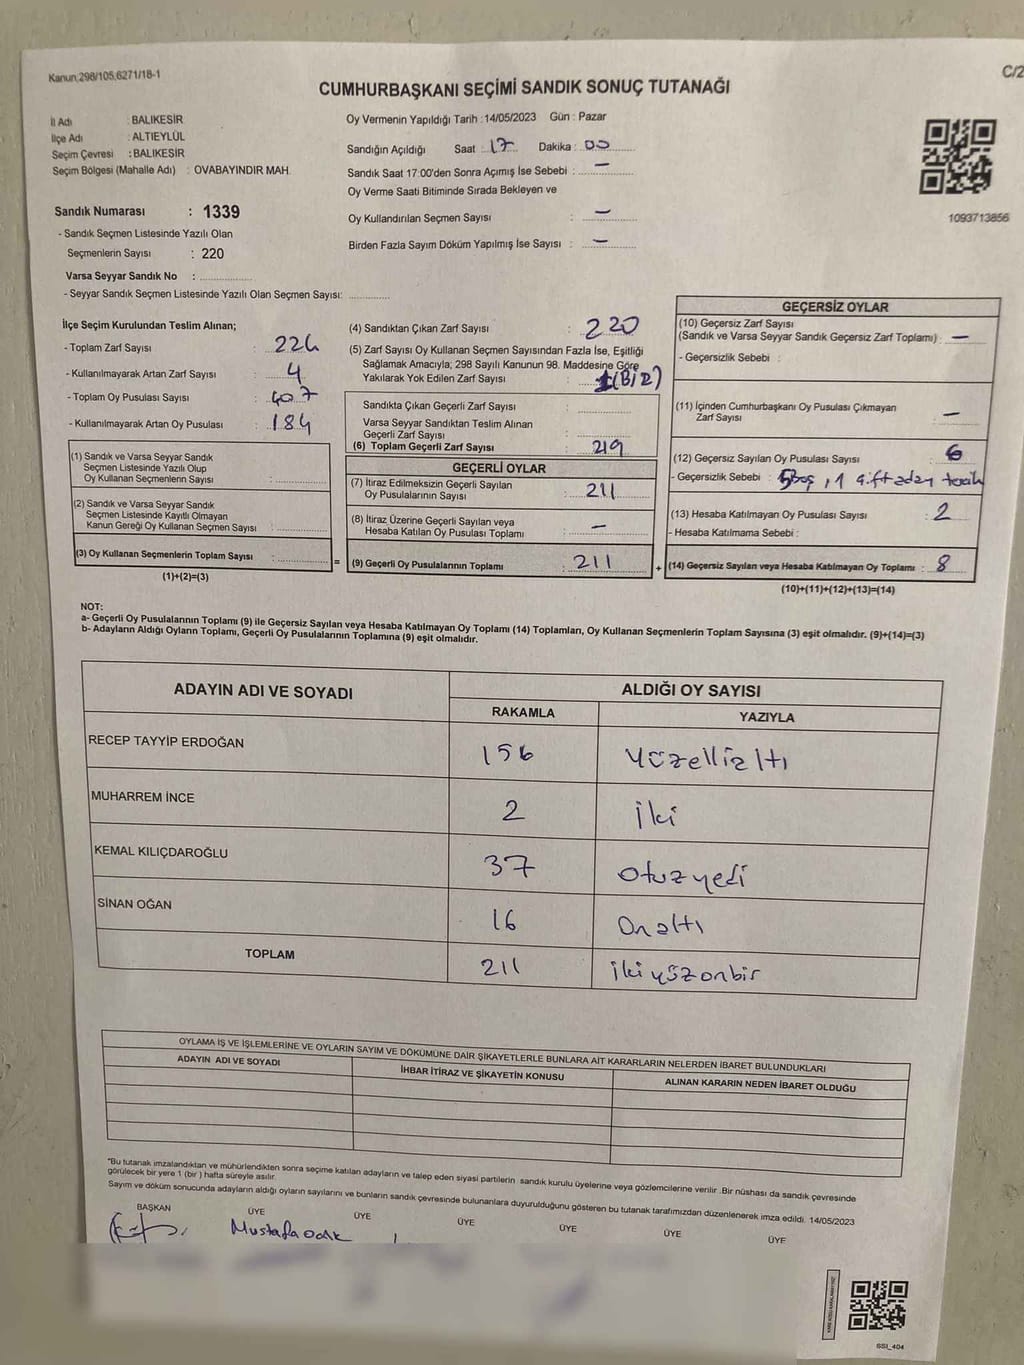 Kanun;298/105,6271/18-1
C/2
CUMHURBAŞKANI SEÇİMİ SANDIK SONUÇ TUTANAĞI
İl Adı : BALIKESİR
İlçe Adı : ALTIEYLÜL
Seçim Çevresi : BALIKESİR
Seçim Bölgesi (Mahalle Adı) : OVABAYINDIR MAH.
Sandık Numarası : 1339
- Sandık Seçmen Listesinde Yazılı Olan
Seçmenlerin Sayısı : 220
Varsa Seyyar Sandık No :
- Seyyar Sandık Seçmen Listesinde Yazılı Olan Seçmen Sayısı:
Oy Vermenin Yapıldığı Tarih :14/05/2023 Gün : Pazar
Sandığın Açıldığı Saat : 17 Dakika : 00
Sandık Saat 17:00'den Sonra Açımış İse Sebebi : —
Oy Verme Saati Bitiminde Sırada Bekleyen ve
Oy Kullandırılan Seçmen Sayısı : —
Birden Fazla Sayım Döküm Yapılmış İse Sayısı : —
1093713856
İlçe Seçim Kurulundan Teslim Alınan;
- Toplam Zarf Sayısı : 224
- Kullanılmayarak Artan Zarf Sayısı : 4
- Toplam Oy Pusulası Sayısı : 407
- Kullanılmayarak Artan Oy Pusulası : 184
(1) Sandık ve Varsa Seyyar Sandık
Seçmen Listesinde Yazılı Olup
Oy Kullanan Seçmenlerin Sayısı :
(2) Sandık ve Varsa Seyyar Sandık
Seçmen Listesinde Kayıtlı Olmayan
Kanun Gereği Oy Kullanan Seçmen Sayısı :
(3) Oy Kullanan Seçmenlerin Toplam Sayısı :
(1)+(2)=(3)
(4) Sandıktan Çıkan Zarf Sayısı : 220
(5) Zarf Sayısı Oy Kullanan Seçmen Sayısından Fazla İse, Eşitliği
Sağlamak Amacıyla; 298 Sayılı Kanunun 98. Maddesine Göre
Yakılarak Yok Edilen Zarf Sayısı : 1(Bir)
Sandıkta Çıkan Geçerli Zarf Sayısı :
Varsa Seyyar Sandıktan Teslim Alınan
Geçerli Zarf Sayısı :
(6) Toplam Geçerli Zarf Sayısı : 219
GEÇERLİ OYLAR
(7) İtiraz Edilmeksizin Geçerli Sayılan
Oy Pusulalarının Sayısı : 211
(8) İtiraz Üzerine Geçerli Sayılan veya
Hesaba Katılan Oy Pusulası Toplamı : —
= (9) Geçerli Oy Pusulalarının Toplamı : 211
GEÇERSİZ OYLAR
(10) Geçersiz Zarf Sayısı
(Sandık ve Varsa Seyyar Sandık Geçersiz Zarf Toplamı) : —
- Geçersizlik Sebebi :
(11) İçinden Cumhurbaşkanı Oy Pusulası Çıkmayan
Zarf Sayısı : —
(12) Geçersiz Sayılan Oy Pusulası Sayısı : 6
- Geçersizlik Sebebi : 5Boş, 1 çift adam tercih
(13) Hesaba Katılmayan Oy Pusulası Sayısı : 2
- Hesaba Katılmama Sebebi :
+ (14) Geçersiz Sayılan veya Hesaba Katılmayan Oy Toplamı : 8
(10)+(11)+(12)+(13)=(14)
NOT:
a- Geçerli Oy Pusulalarının Toplamı (9) ile Geçersiz Sayılan veya Hesaba Katılmayan Oy Toplamı (14) Toplamları, Oy Kullanan Seçmenlerin Toplam Sayısına (3) eşit olmalıdır. (9)+(14)=(3)
b- Adayların Aldığı Oyların Toplamı, Geçerli Oy Pusulalarının Toplamına (9) eşit olmalıdır.
ADAYIN ADI VE SOYADI ALDIĞI OY SAYISI
RAKAMLA YAZIYLA
RECEP TAYYİP ERDOĞAN 156 Yüzellialtı
MUHARREM İNCE 2 İki
KEMAL KILIÇDAROĞLU 37 Otuzyedi
SİNAN OĞAN 16 Onaltı
TOPLAM 211 ikiyüzonbir
OYLAMA İŞ VE İŞLEMLERİNE VE OYLARIN SAYIM VE DÖKÜMÜNE DAİR ŞİKAYETLERLE BUNLARA AİT KARARLARIN NELERDEN İBARET BULUNDUKLARI
ADAYIN ADI VE SOYADI İHBAR İTİRAZ VE ŞİKAYETİN KONUSU ALINAN KARARIN NEDEN İBARET OLDUĞU
"Bu tutanak imzalandıktan ve mühürlendikten sonra seçime katılan adayların ve talep eden siyasi partilerin sandık kurulu üyelerine veya gözlemcilerine verilir. Bir nüshası da sandık çevresinde
görülecek bir yere 1 (bir ) hafta süreyle asılır.
Sayım ve döküm sonucunda adayların aldığı oyların sayılarını ve bunların sandık çevresinde bulunanlara duyurulduğunu gösteren bu tutanak tarafımızdan düzenlenerek imza edildi. 14/05/2023
BAŞKAN ÜYE ÜYE ÜYE ÜYE ÜYE ÜYE
Mustafa
SSI_404